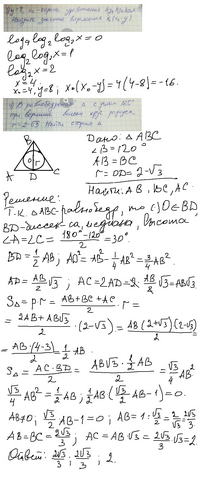 log₃ log₂ log₂ x = 0
log₂ log₂ x = 1
log₂ x = 2
x = 4
x = 4, y = 8; x•(x₀-y) = 4(4-8) = -16.
B
O
r
A D C
Дано: △ABC
∠B = 120°
AB = BC
r = OD = 2-√3
Найти: AB, BC, AC.
Решение:
Т.к. △ABC равнобедр, то 0 ∈ BD,
BD - биссек-са, медиана, высота,
∠A = ∠C = (180°-120°)/2 = 30°.
BD = 1/2 AB; AD² = AB² - 1/4 AB² = 3/4 AB².
AD = AB/2 √3; AC = 2AD = 2·AB/2 √3 = AB√3
S△ = p r = (AB+BC+AC)/2 · r =
= (2AB+AB√3)/2 · (2-√3) = AB(2+√3)(2-√3)/2
= AB·(4-3)/2 = 1/2 AB.
S△ = AC·BD/2 = AB√3·1/2 AB/2 = √3/4 AB²
√3/4 AB² = 1/2 AB; 1/2 AB(√3/2 AB - 1) = 0.
AB≠0, √3/2 AB - 1 = 0; AB = 1:√3/2 = 2/√3 = 2√3/3
AB = BC = 2√3/3; AC = AB√3 = 2√3/3 √3 = 2.
Ответ: 2√3/3; 2√3/3; 2.